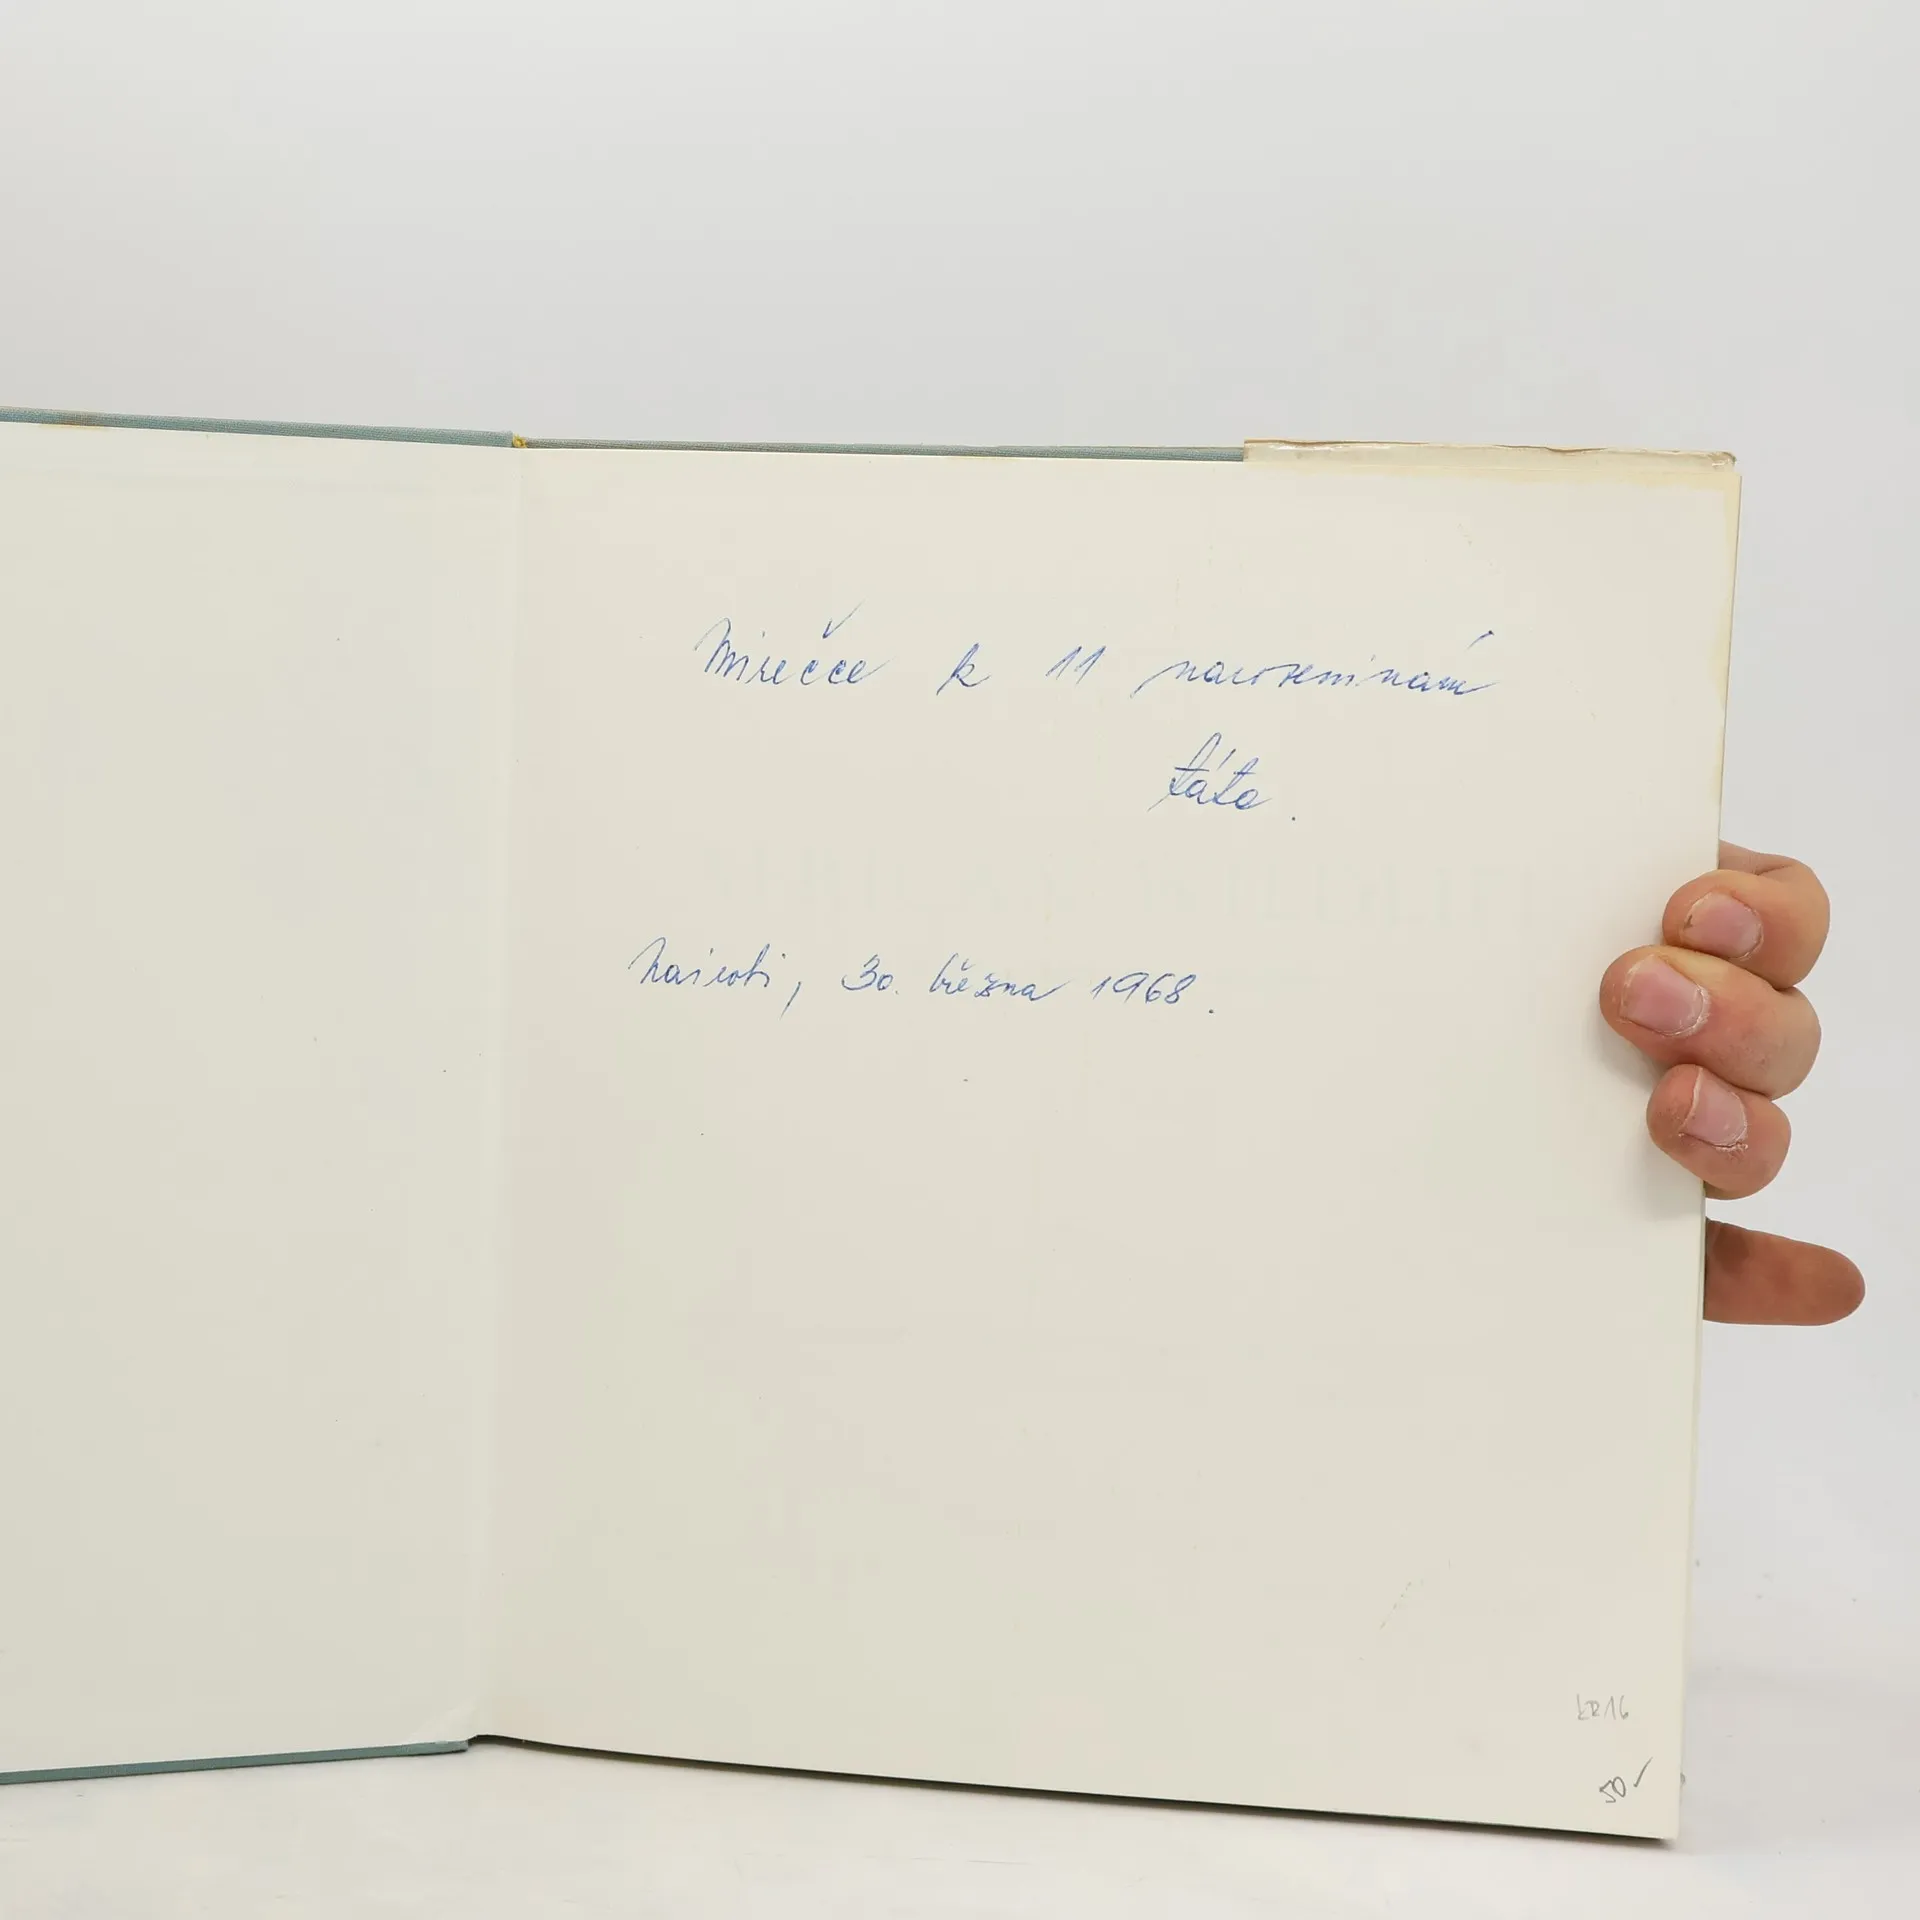 Mirečce k 11 narozeninám
táta.
Nairobi, 30. března 1968.
50,-